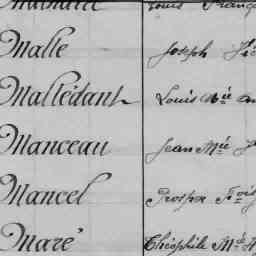 Malle Joseph
Mallédant Louis Mie
Manceau Jean Mie
Mancel Prosper Fois
Maré Théophile Mie